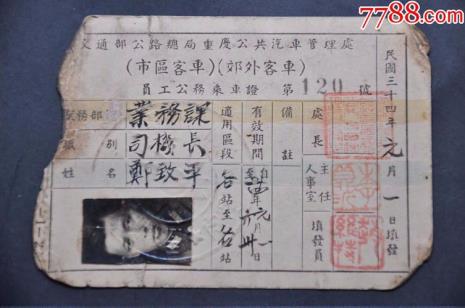 7788.com
交通部公路總局重慶公共汽車管理處
(市區客車)(郊外客車)
員工公務乘車證 第120號
服務部 業務課
職別 司機長
姓名 鄭致平
適用區段
各站至各站
有效期間
備註
處長
人事室主任
填發員
民國三十四年元月一日填發